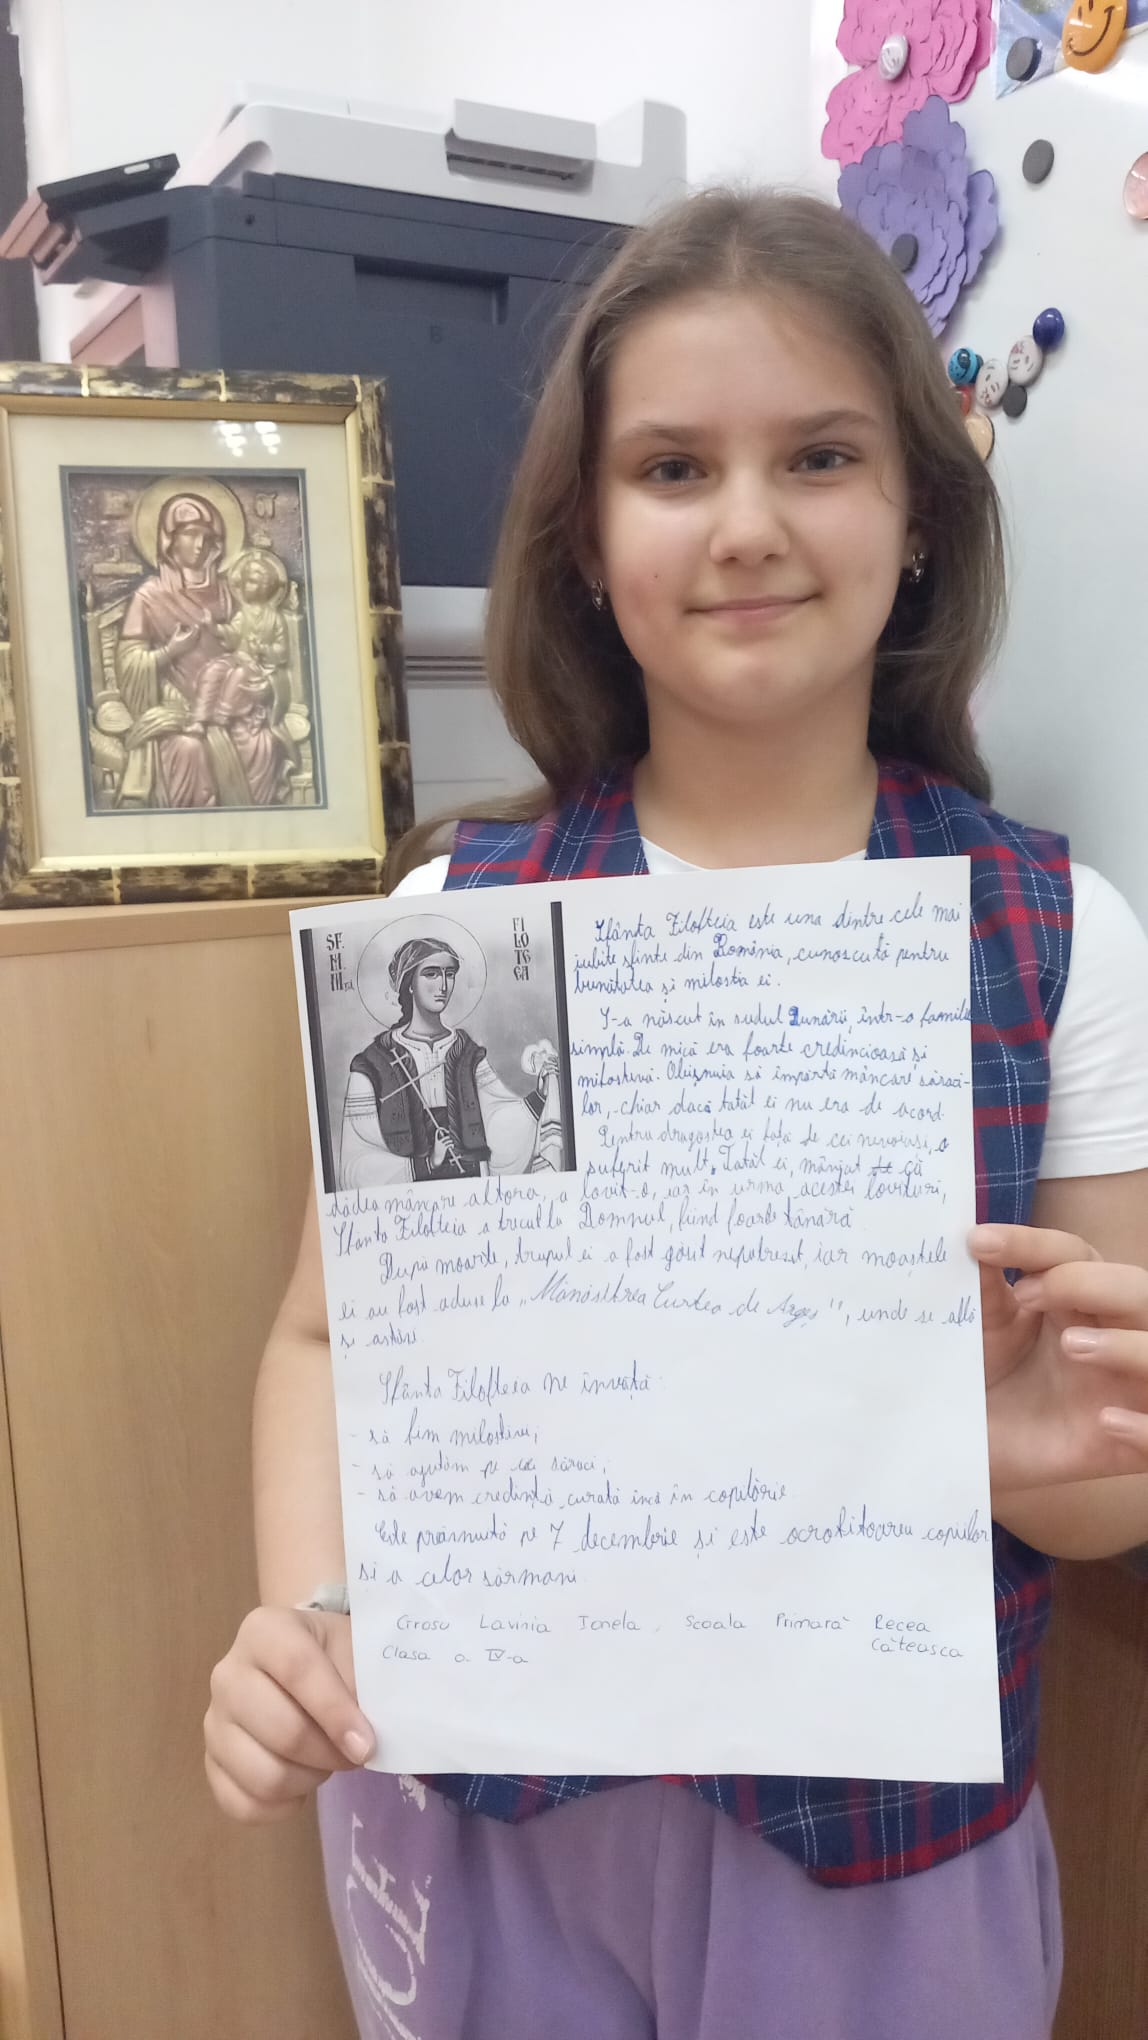 SF. FILOTEEA
M.
Sfânta Filofteia este una dintre cele mai
iubite sfinte din România, cunoscută pentru
bunătatea și milostia ei.
S-a născut în sudul Dunării, într-o familie
simplă. De mică era foarte credincioasă și
milostivă. Obișnuia să împartă mâncare săraci-
lor, chiar dacă tatăl ei nu era de acord.
Pentru dragostea ei față de cei nevoiași, a
suferit mult. Tatăl ei, mânjat că
dădea mâncare altora, a lovit-o, iar în urma acestei lovituri,
Sfânta Filofteia a trecut la Domnul, fiind foarte tânără.
După moarte, trupul ei a fost găsit neputrezit, iar moaștele
ei au fost aduse la „Mănăstirea Curtea de Argeș", unde se află
și astăzi.
Sfânta Filofteea ne învață:
- să fim milostivi;
- să ajutăm pe cei săraci;
- să avem credință curată încă în copilărie.
Este prăznuită pe 7 decembrie și este ocrotitoarea copiilor
și a celor sărmani.
Grosu Lavinia Ionela, Școala Primară Recea
Căteasca
Clasa a IV-a